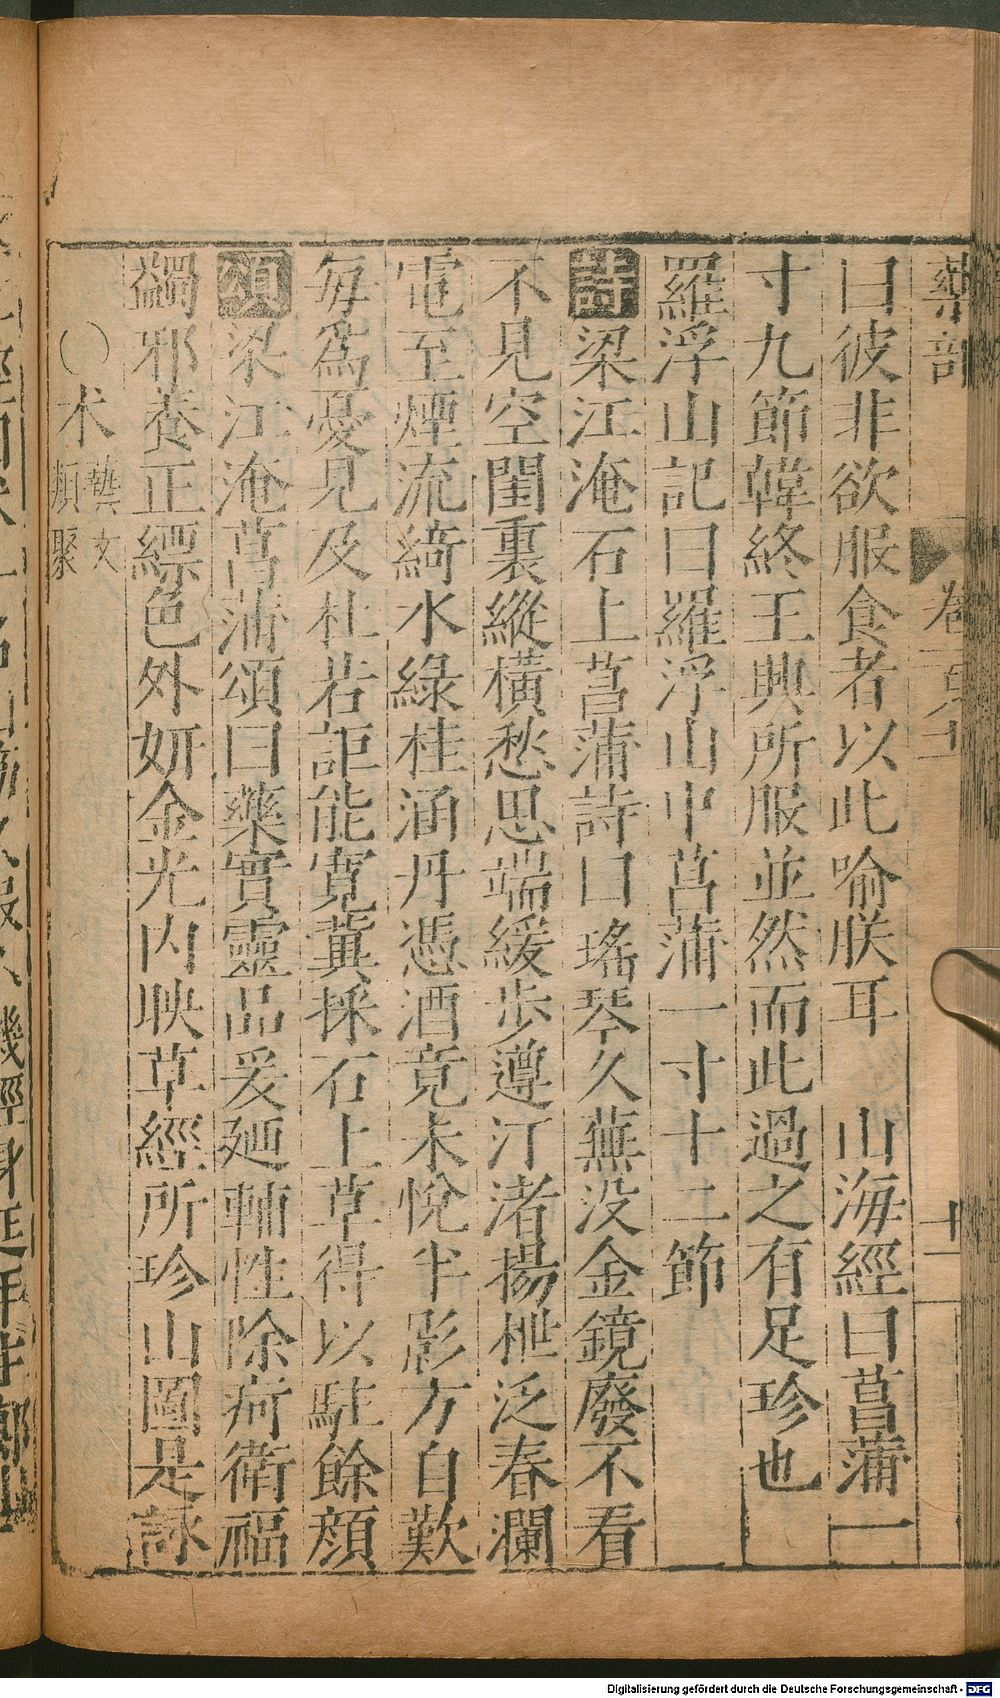 藥部
十一
曰彼非欲服食者以此喻朕耳　山海經曰菖蒲一
寸九節韓終王興所服並然而此過之有足珍也
羅浮山記曰羅浮山中菖蒲一寸十二節
詩梁江淹石上菖蒲詩曰瑤琴久蕪没金鏡廢不看
不見空閨裏縱橫愁思端緩步遵汀渚揚枻泛春瀾
電至煙流綺水綠桂涵丹憑酒竟未悅半影方自歎
每爲憂見及杜若詎能寬冀採石上草得以駐餘顔
頌梁江淹菖蒲頌曰藥實靈品爰廼輔性除疴衛福
蠲邪養正縹色外妍金光內映草經所珍山圖是詠
〇术藝文類聚
Digitalisierung gefördert durch die Deutsche Forschungsgemeinschaft - DFG